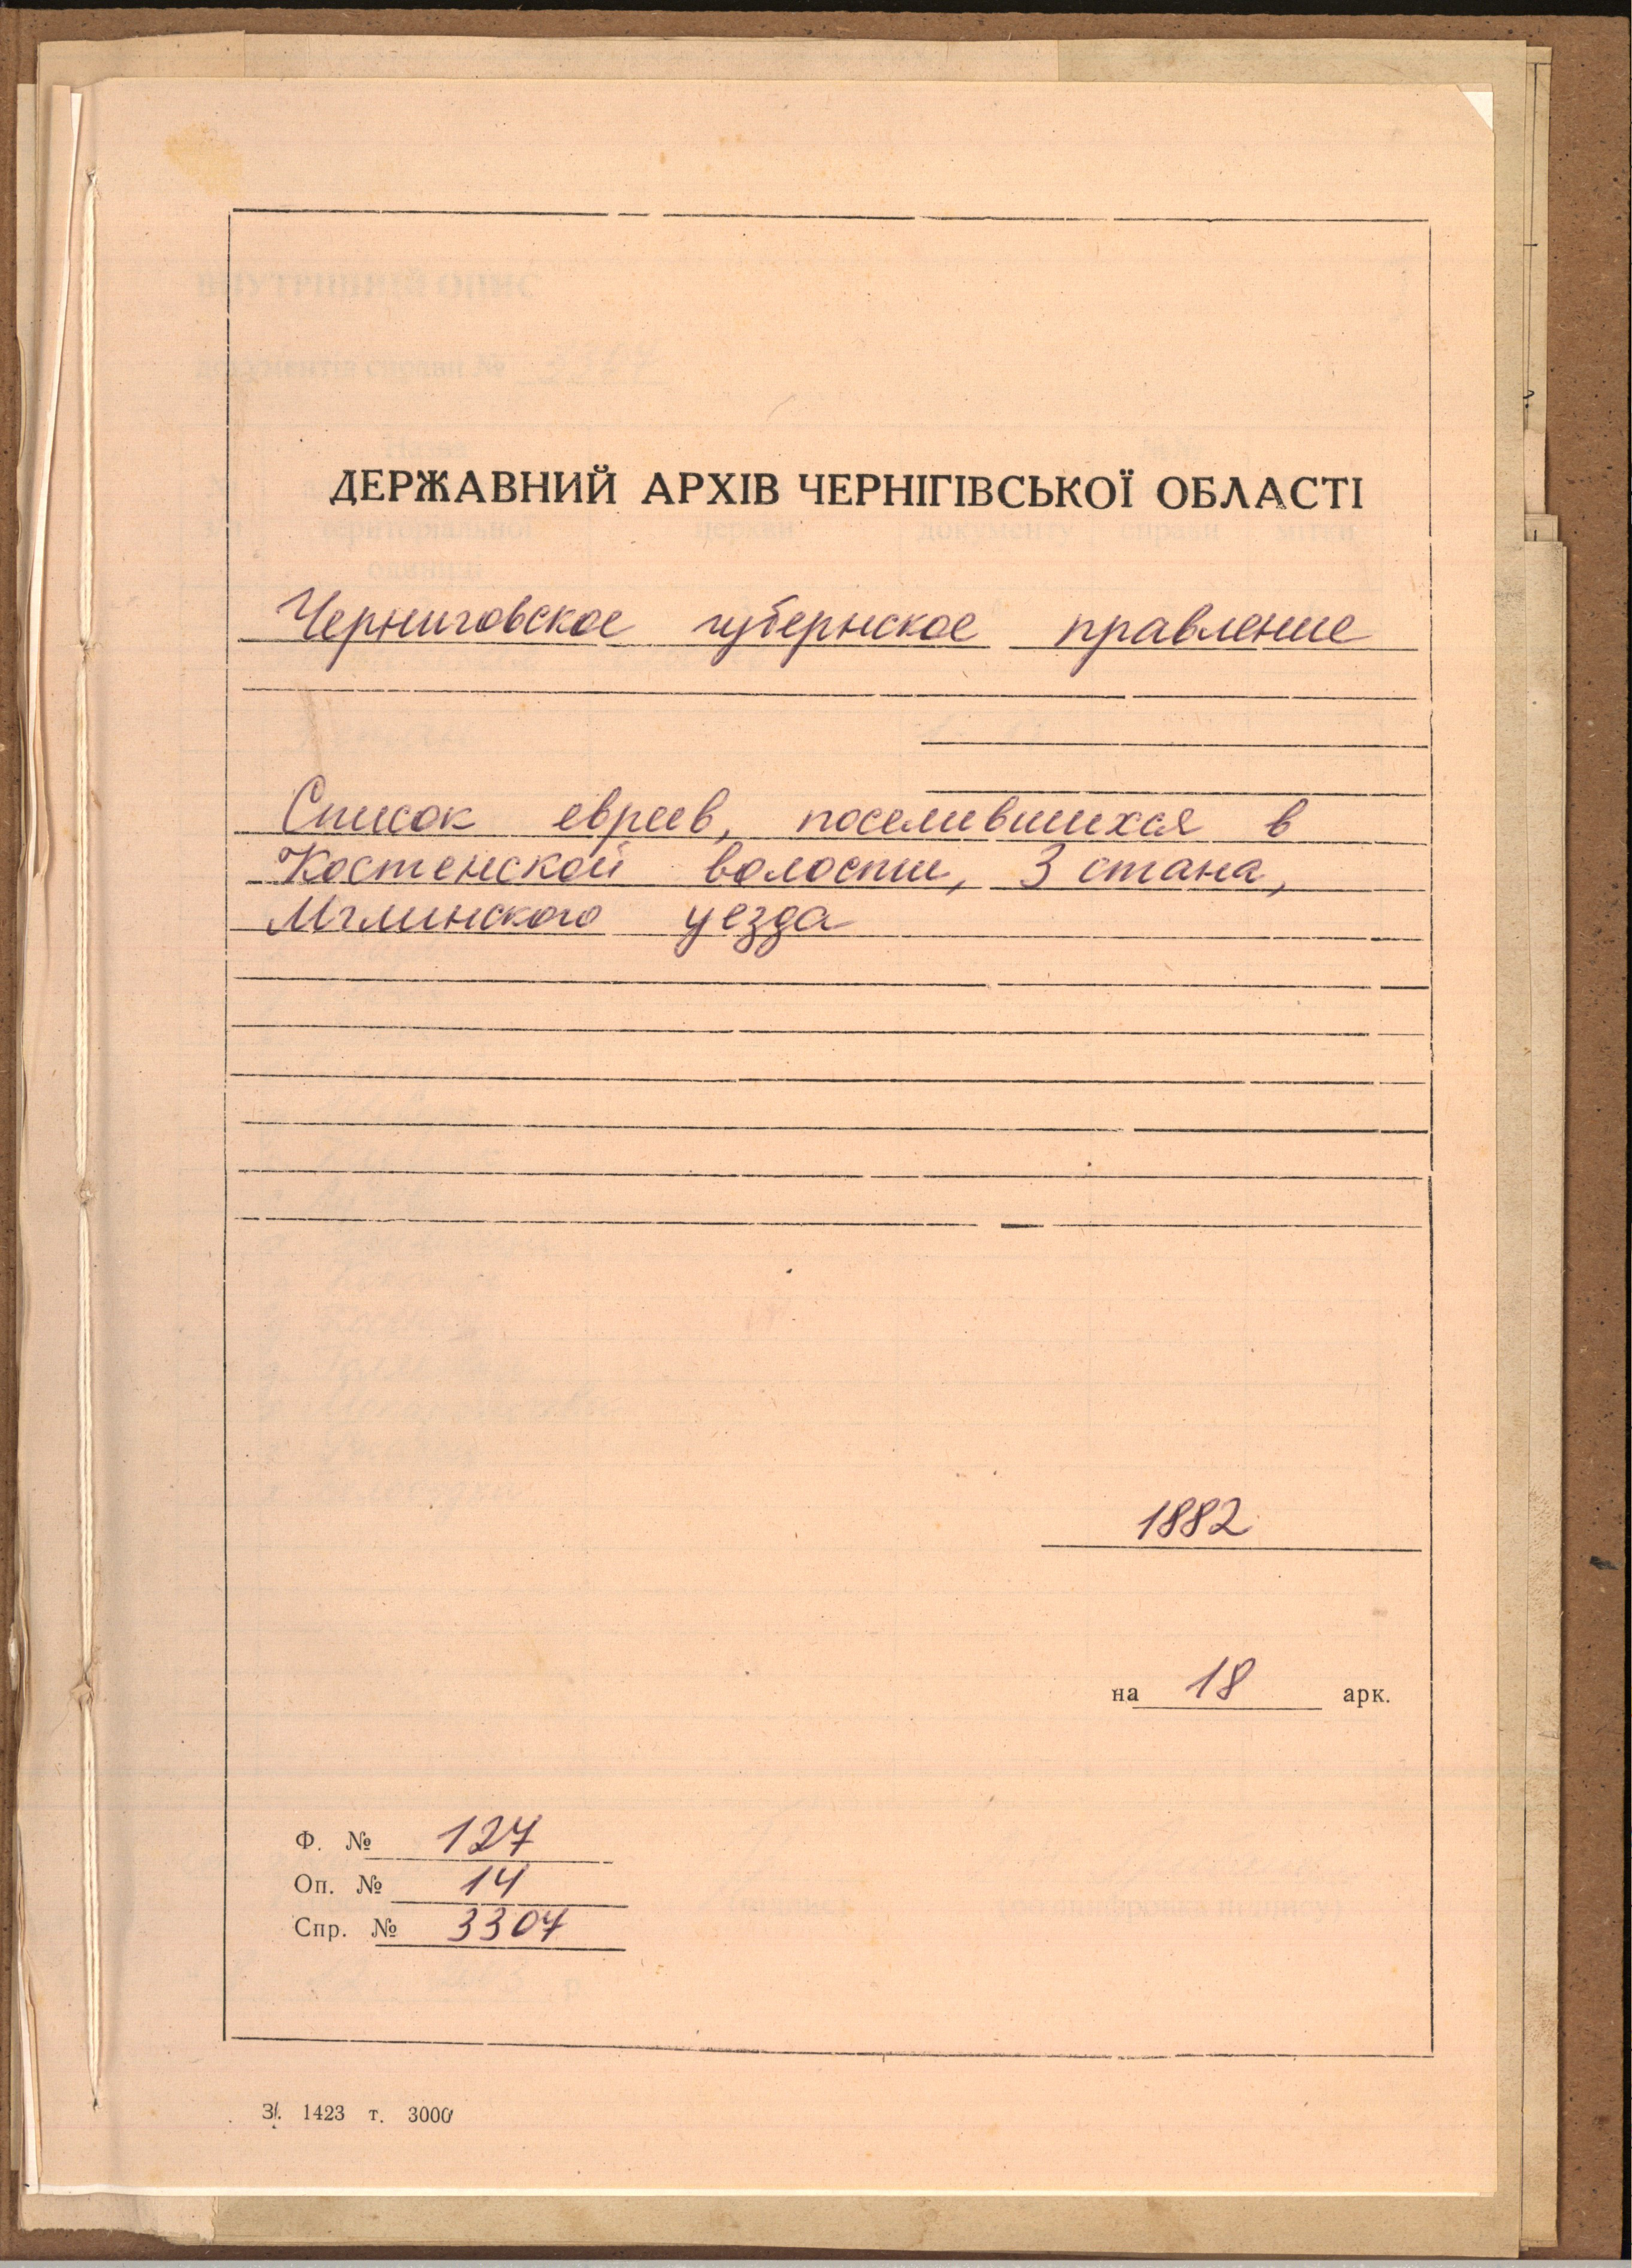 ДЕРЖАВНИЙ АРХІВ ЧЕРНІГІВСЬКОЇ ОБЛАСТІ
Черниговское губернское правление
Список евреев, поселившихся в
Костенской волости, 3 стана,
Мглинского уезда
1882
на 18 арк.
Ф. № 127
Оп. № 14
Спр. № 3307
З. 1423 т. 3000